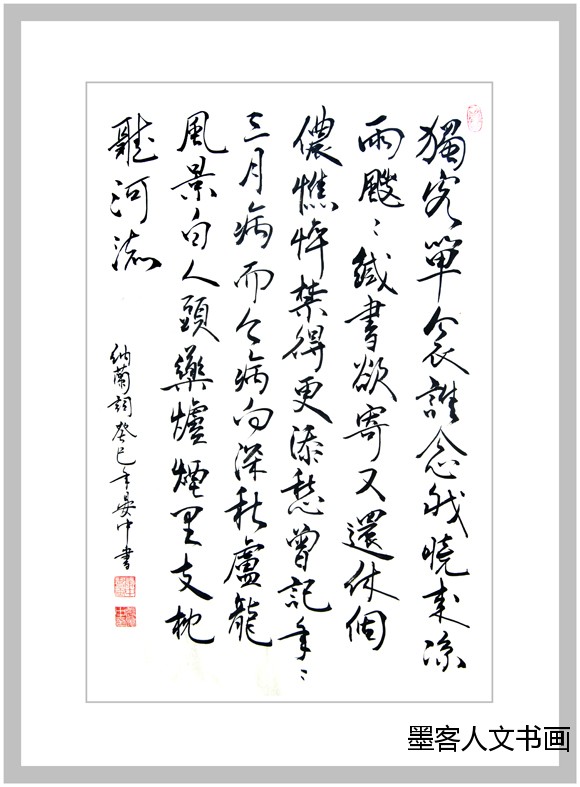 獨客單衾誰念我曉來凉
雨颼〻緘書欲寄又還休個
儂憔悴禁得更添愁曾記年〻
三月病而今病向深秋盧龍
風景白人頭藥爐煙里支枕
聽河流
納蘭詞癸巳晏中書
墨客人文书画